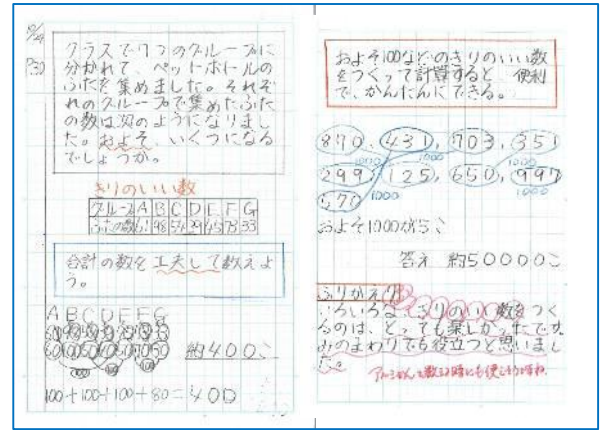 10/29
P.30
クラスで7つのグループに
分かれて ペットボトルの
ふたを集めました。それぞ
れのグループで集めたふた
の数は次のようになりまし
た。およそ、いくつになる
でしょうか。
きりのいい数
グループ A B C D E F G
ふたの数 61 98 54 39 45 73 33
合計の数を工夫して数えよ
う。
A B C D E F G
約400こ
100+100+100+80=400
およそ100などのきりのいい数
をつくって計算すると 便利
で、かんたんにできる。
870、431、703、351
1000 1000 1000
299、125、650、997
1000 1000
571
およそ1000が5こ
答え 約5000こ
ふりかえり
いろいろなきりのいい数をつく
るのは、とっても楽しかったです。
みのまわりでも役立つと思いまし
た。